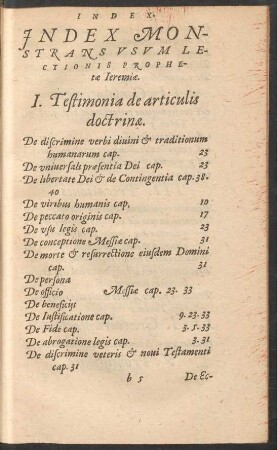 INDEX.
INDEX MON-
STRANS VSVM LE-
CTIONIS PROPHE-
tæ Ieremiæ.
I. Testimonia de articulis
doctrinæ.
De discrimine verbi diuini & traditionum
humanarum cap. 23
De vniuersali præsentia Dei cap. 23
De libertate Dei & de Contingentia cap. 38.
40
De viribus humanis cap. 10
De peccato originis cap. 17
De vsu legis cap. 23
De conceptione Messiæ cap. 31
De morte & resurrectione eiusdem Domini
cap. 31
De persona
De officio Messiæ cap. 23. 33
De beneficijs
De Iustificatione cap. 9. 23. 33
De Fide cap. 3. 5. 33
De abrogatione legis cap. 3. 31
De discrimine veteris & noui Testamenti
cap. 31
b 5 De Ec-